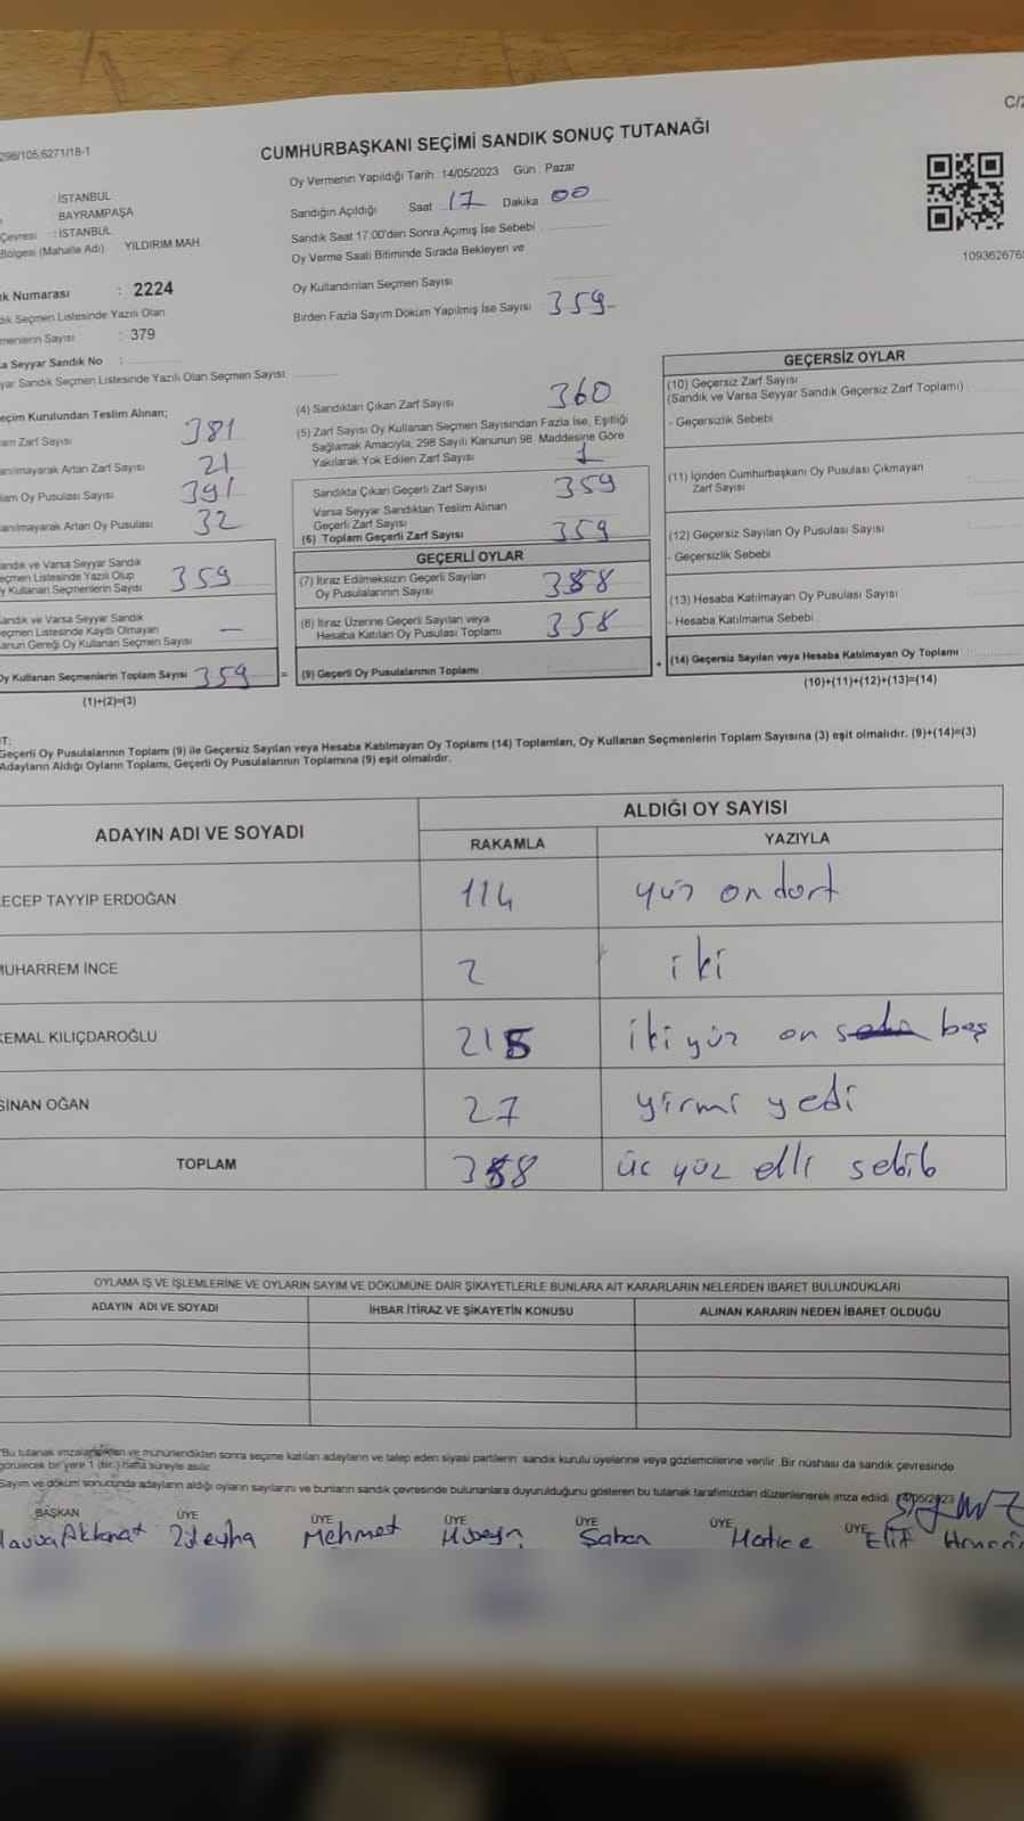 C/2
298/105,6271/18-1
CUMHURBAŞKANI SEÇİMİ SANDIK SONUÇ TUTANAĞI
Oy Vermenin Yapıldığı Tarih: 14/05/2023 Gün: Pazar
İSTANBUL
BAYRAMPAŞA
Çevresi : İSTANBUL
Bölgesi (Mahalle Adı) YILDIRIM MAH.
Sandığın Açıldığı Saat 17 Dakika 00
Sandık Saat 17:00'den Sonra Açımış İse Sebebi
Oy Verme Saati Bitiminde Sırada Bekleyen ve
Oy Kullandırılan Seçmen Sayısı
Birden Fazla Sayım Döküm Yapılmış İse Sayısı 359
109362676
k Numarası : 2224
ık Seçmen Listesinde Yazılı Olan
menlerin Sayısı : 379
a Seyyar Sandık No :
yar Sandık Seçmen Listesinde Yazılı Olan Seçmen Sayısı
eçim Kurulundan Teslim Alınan;
am Zarf Sayısı 381
anılmayarak Artan Zarf Sayısı 21
lam Oy Pusulası Sayısı 391
anılmayarak Artan Oy Pusulası 32
andık ve Varsa Seyyar Sandık
eçmen Listesinde Yazılı Olup
y Kullanan Seçmenlerin Sayısı 359
andık ve Varsa Seyyar Sandık
eçmen Listesinde Kayıtlı Olmayan
anun Gereği Oy Kullanan Seçmen Sayısı —
Oy Kullanan Seçmenlerin Toplam Sayısı 359
(1)+(2)=(3)
(4) Sandıktan Çıkan Zarf Sayısı 360
(5) Zarf Sayısı Oy Kullanan Seçmen Sayısından Fazla İse, Eşitliği
Sağlamak Amacıyla, 298 Sayılı Kanunun 98. Maddesine Göre
Yakılarak Yok Edilen Zarf Sayısı 1
Sandıkta Çıkan Geçerli Zarf Sayısı 359
Varsa Seyyar Sandıktan Teslim Alınan
Geçerli Zarf Sayısı
(6) Toplam Geçerli Zarf Sayısı 359
GEÇERLİ OYLAR
(7) İtiraz Edilmeksizin Geçerli Sayılan
Oy Pusulalarının Sayısı 358
(8) İtiraz Üzerine Geçerli Sayılan veya
Hesaba Katılan Oy Pusulası Toplamı 358
= (9) Geçerli Oy Pusulalarının Toplamı
GEÇERSİZ OYLAR
(10) Geçersiz Zarf Sayısı
(Sandık ve Varsa Seyyar Sandık Geçersiz Zarf Toplamı)
- Geçersizlik Sebebi
(11) İçinden Cumhurbaşkanı Oy Pusulası Çıkmayan
Zarf Sayısı
(12) Geçersiz Sayılan Oy Pusulası Sayısı
- Geçersizlik Sebebi
(13) Hesaba Katılmayan Oy Pusulası Sayısı
- Hesaba Katılmama Sebebi
+ (14) Geçersiz Sayılan veya Hesaba Katılmayan Oy Toplamı
(10)+(11)+(12)+(13)=(14)
T:
Geçerli Oy Pusulalarının Toplamı (9) ile Geçersiz Sayılan veya Hesaba Katılmayan Oy Toplamı (14) Toplamları, Oy Kullanan Seçmenlerin Toplam Sayısına (3) eşit olmalıdır. (9)+(14)=(3)
Adayların Aldığı Oyların Toplamı, Geçerli Oy Pusulalarının Toplamına (9) eşit olmalıdır.
ADAYIN ADI VE SOYADI ALDIĞI OY SAYISI
RAKAMLA YAZIYLA
ECEP TAYYİP ERDOĞAN 114 yüz on dört
MUHARREM İNCE 2 iki
KEMAL KILIÇDAROĞLU 215 iki yüz on beş
SİNAN OĞAN 27 yirmi yedi
TOPLAM 358 üc yüz elli sebib
OYLAMA İŞ VE İŞLEMLERİNE VE OYLARIN SAYIM VE DÖKÜMÜNE DAİR ŞİKAYETLERLE BUNLARA AİT KARARLARIN NELERDEN İBARET BULUNDUKLARI
ADAYIN ADI VE SOYADI İHBAR İTİRAZ VE ŞİKAYETİN KONUSU ALINAN KARARIN NEDEN İBARET OLDUĞU
Bu tutanak imzalandıktan ve mühürlendikten sonra seçime katılan adayların ve talep eden siyasi partilerin sandık kurulu üyelerine veya gözlemcilerine verilir. Bir nüshası da sandık çevresinde
görülecek bir yere 1 (bir) hafta süreyle asılır.
Sayım ve döküm sonucunda adayların aldığı oyların sayılarını ve bunların sandık çevresinde bulunanlara duyurulduğunu gösteren bu tutanak tarafımızdan düzenlenerek imza edildi.
BAŞKAN ÜYE ÜYE ÜYE ÜYE ÜYE ÜYE
Züleyha Mehmet Hüseyn Şaban Hatice Elif